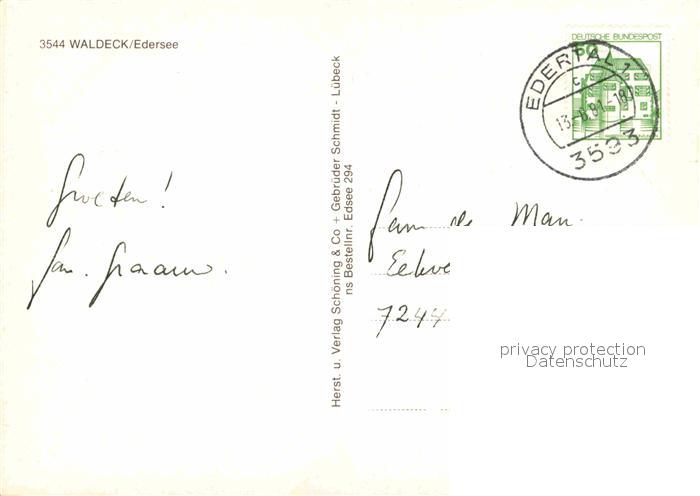 3544 WALDECK/Edersee
DEUTSCHE BUNDESPOST
50
EDERTAL 1
c
13.-8.81-18
3593
Groeten!
Fam.
Herst. u. Verlag Schöning & Co + Gebrüder Schmidt - Lübeck
ns Bestellnr. Edsee 294
Fam de Man.
7244
privacy protection
Datenschutz